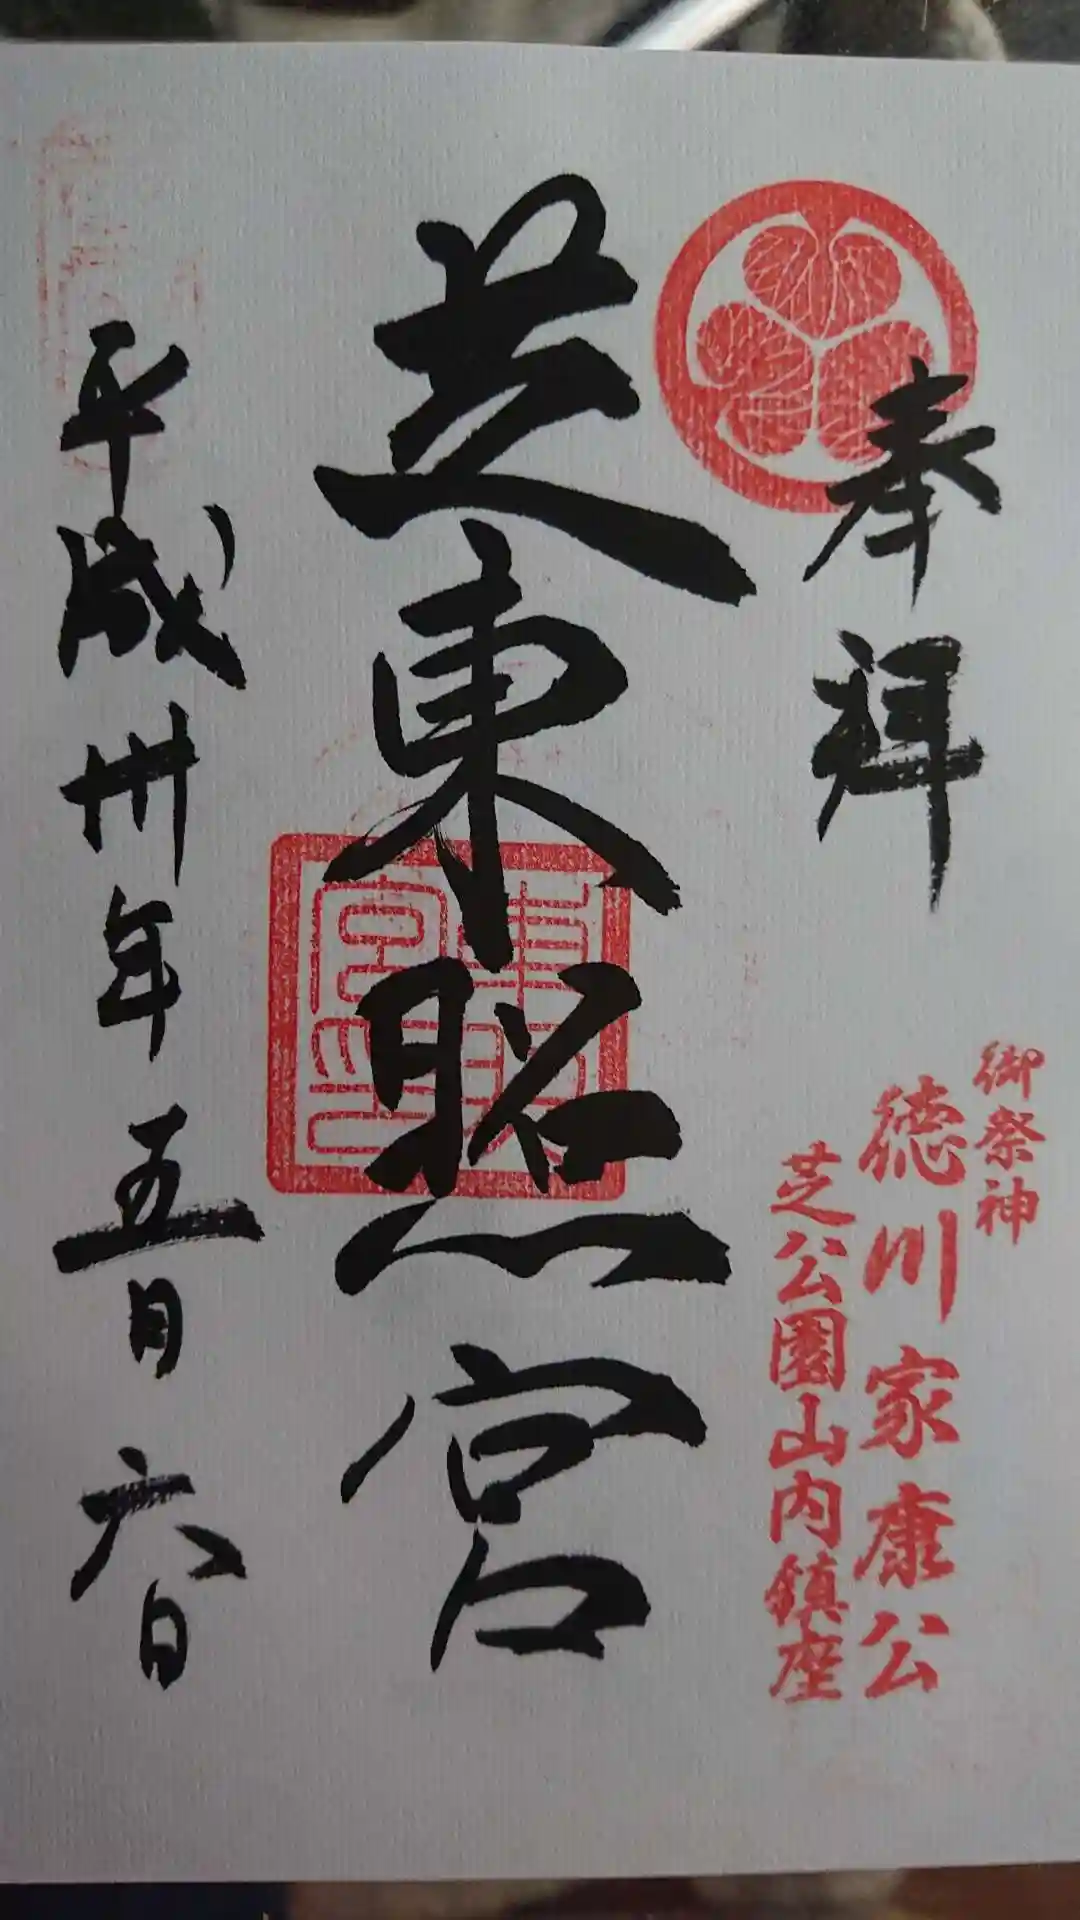 奉拝
御祭神
徳川家康公
芝公園山内鎮座
芝東照宮
平成卅年五月六日